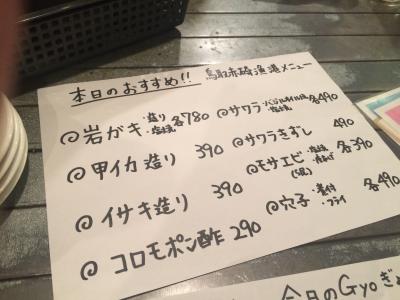 本日のおすすめ!! 鳥取赤碕漁港メニュー
◎岩がキ ・造り ・塩焼 各780
◎甲イカ造り 390
◎イサキ造り 390
◎コロモポン酢 290
◎サワラ ・塩焼 各490
◎サワラきずし 490
◎モサエビ ・塩焼 各390
◎穴子 ・煮付 ・フライ 各490
今日のGyoぎょ